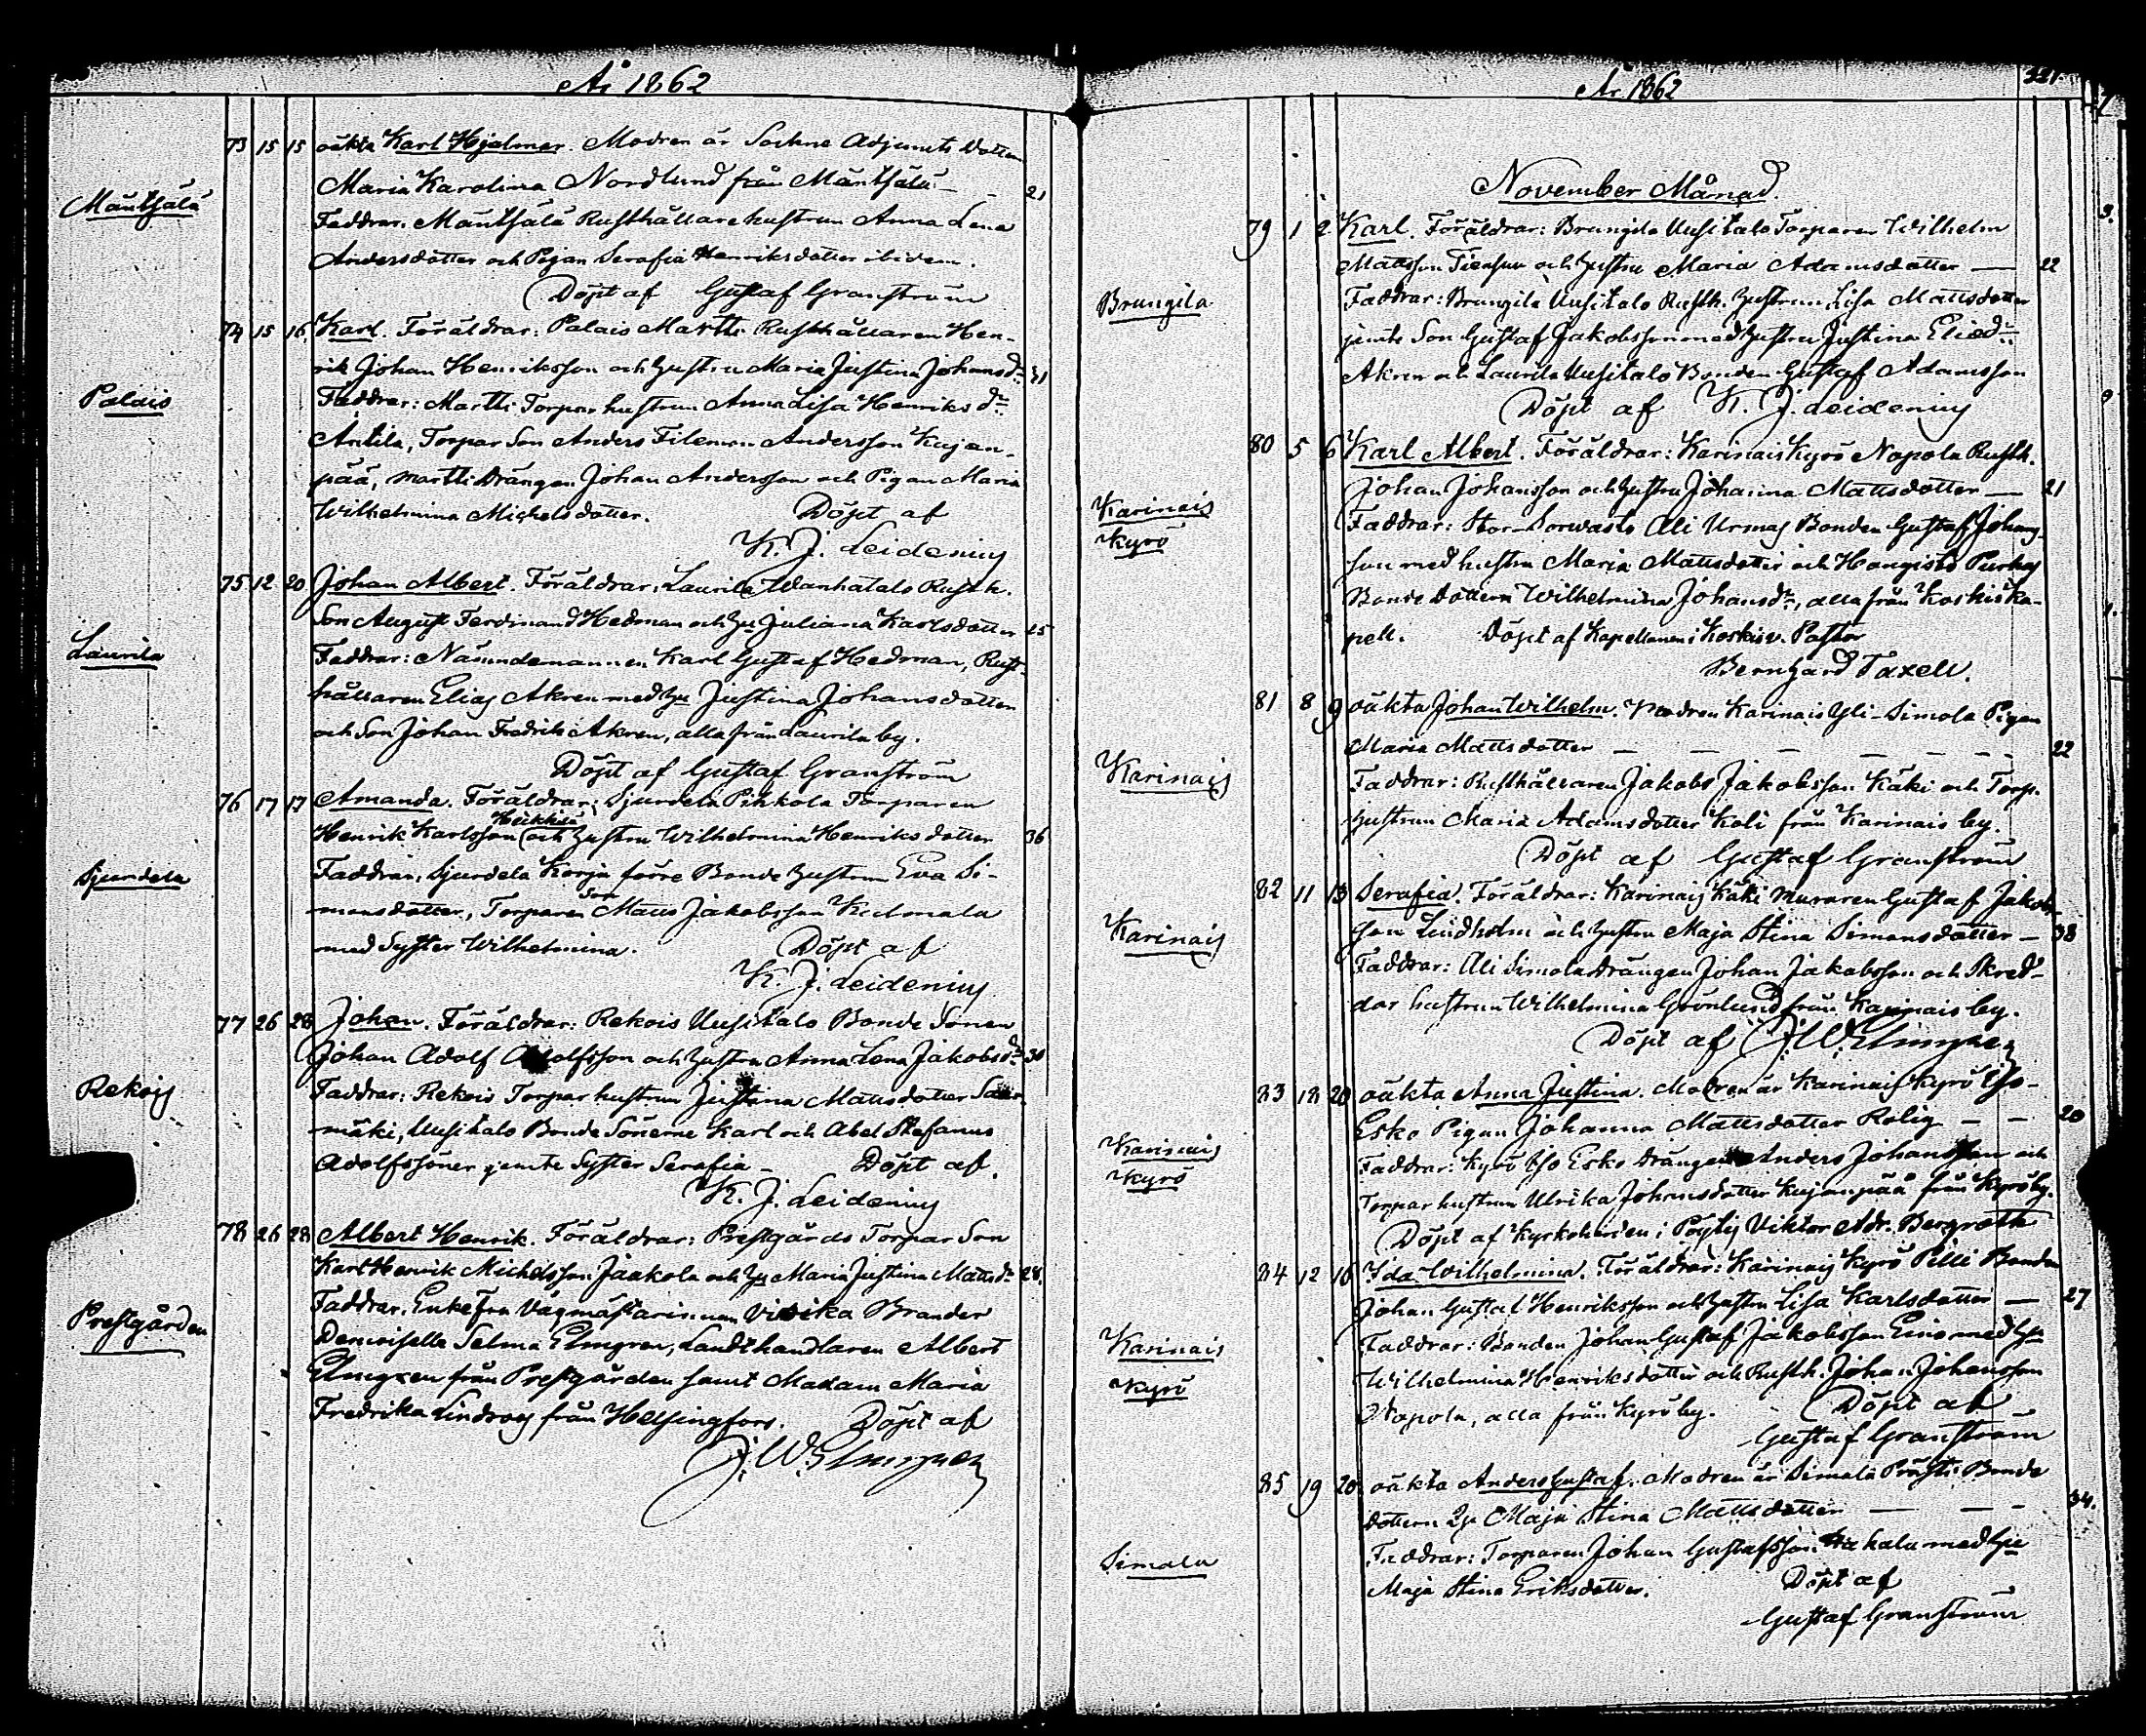 År 1862
73 15 15 oäkta Karl Hjalmar. Modren är Sockne Adjunkts Dottern
Mäntsälä
Maria Karolina Nordlund från Mäntsälä – – 21
Faddrar: Mäntsälä Rusthållarehustrun Anna Lena
Andersdotter och Pigan Serafia Henriksdotter ibidem.
Döpt af Gustaf Granström
74 15 16 Karl. Föräldrar: Palais Martti Rusthållaren Hen-
rik Johan Henriksson och hustru Maria Justina Johansdr 31
Palais
Faddrar: Martti Torparhustrun Anna Lisa Henriksdr
Antila, Torpar Son Anders Filemon Andersson Kujan-
pää, Martti Drängen Johan Andersson och Pigan Maria
Wilhelmina Michelsdotter. Döpt af
K. J. Leidenius
75 12 20 Johan Albert. Föräldrar: Laurila Wanhatalo Rusth.
Son August Ferdinand Hedman och Hu Juliana Karlsdotter 25
Laurila
Faddrar: Nämndemannen Karl Gustaf Hedman, Rust-
hållaren Elias Akren med Hu Justina Johansdotter
och Son Johan Fredrik Akren, alla från Laurila by.
Döpt af Gustaf Granström
76 17 17 Amanda. Föräldrar: Sjurdela Pihkola Torparen
Heikkilä
Henrik Karlsson och hustru Wilhelmina Henriksdotter 36
Sjurdela
Faddrar: Sjurdela Korja förre Bonde hustrun Eva Si-
Son
monsdotter, Torparen Matts Jakobsson Kulmala
med Syster Wilhelmina. Döpt af
K. J. Leidenius
77 26 28 Johan. Föräldrar: Rekois Uusitalo Bonde Sonen
Johan Adolf Adolfsson och hustru Anna Lena Jakobsdr 30
Rekois
Faddrar: Rekois Torparhustrun Justina Mattsdotter
mäki, Uusitalo Bonde Sönerne Karl och Abel Stefanus
Adolfssöner jemte Syster Serafia – Döpt af
K. J. Leidenius
78 26 28 Albert Henrik. Föräldrar: Prestgårds Torpar Son
Karl Henrik Michelsson Jaakola och Hu Maria Justina Mattsdr 28.
Prestgården
Faddrar: Enkefru Vågmästarinnan Brander
Demoiselle Selma Elmgren, Landthandlaren Albert
Elmgren från Prestgården samt Madam Maria
Fredrika Lindroos från Helsingfors. Döpt af
J. W. Elmgren
År 1862
331.
November Månad.
79 1 2 Karl. Föräldrar: Brungila Uusitalo Torparen Wilhelm
Mattsson Tiensuu och hustru Maria Adamsdotter — 22
Brungila
Faddrar: Brungila Uusitalo Rusth. hustrun Lisa Mattsdotter
jemte Son Gustaf Jakobsson med hustru Justina Eliædr
Akren och Laurila Uusitalo Bonden Gustaf Adamsson
Döpt af K. J. Leidenius
80 5 6 Karl Albert. Föräldrar: Karinais Kyrö Nopola Rusth.
Johan Johansson och hustru Johanna Mattsdotter — 21
Karinais
Kyrö
Faddrar: Stor-Sorwasto Ali Urmas Bonden Gustaf Johans-
son med hustru Maria Mattsdotter och Hongisto Purhas
Bonde Dottern Wilhelmina Johansdr, alla från Koskis ka-
pell. Döpt af Kapellanen i Koskis v. Pastor
Bernhard Taxell.
81 8 9 oäkta Johan Wilhelm. Modren Karinais Yli-Simola Pigan
Maria Mattsdotter – – – – – – 22
Karinais
Faddrar: Rusthållaren Jakob Jakobsson Käki och Torp.
hustrun Maria Adamsdotter Koli från Karinais by.
Döpt af Gustaf Granström
82 11 13 Serafia. Föräldrar: Karinais Käki Muraren Gustaf Jakobs-
son Lindholm och hustru Maja Stina Simonsdotter – 38
Karinais
Faddrar: Ali Simola Drängen Johan Jakobsson och Skräd-
dar hustrun Wilhelmina Grönlund från Karinais by.
Döpt af J. W. Elmgren
83 18 20 oäkta Anna Justina. Modren är Karinais Kyrö Iso-
Esko Pigan Johanna Mattsdotter Rolig – – 20
Karinais
Kyrö
Faddrar: Kyrö Iso Esko Drängen Anders Johansson och
Torparhustrun Ulrika Johansdotter Kujanpää från Kyrö by.
Döpt af Kyrkoherden i Pöytis Viktor Adr. Bergroth
84 12 16 Ida Wilhelmina. Föräldrar: Karinais Kyrö Pilli Bonden
Johan Gustaf Henriksson och hustru Lisa Karlsdotter — 27
Karinais
Kyrö
Faddrar: Bonden Johan Gustaf Jakobsson Eino med Hu
Wilhelmina Henriksdotter och Rusth. Johan Johansson
Nopola, alla från Kyrö by. Döpt af
Gustaf Granström
85 19 20 oäkta Anders Gustaf. Modren är Simala Prusti Bonde
Dottern Maja Stina Mattsdotter — – – 34.
Simala
Faddrar: Torparen Johan Gustafsson med Hu
Maja Stina Eriksdotter. Döpt af
Gustaf Granström